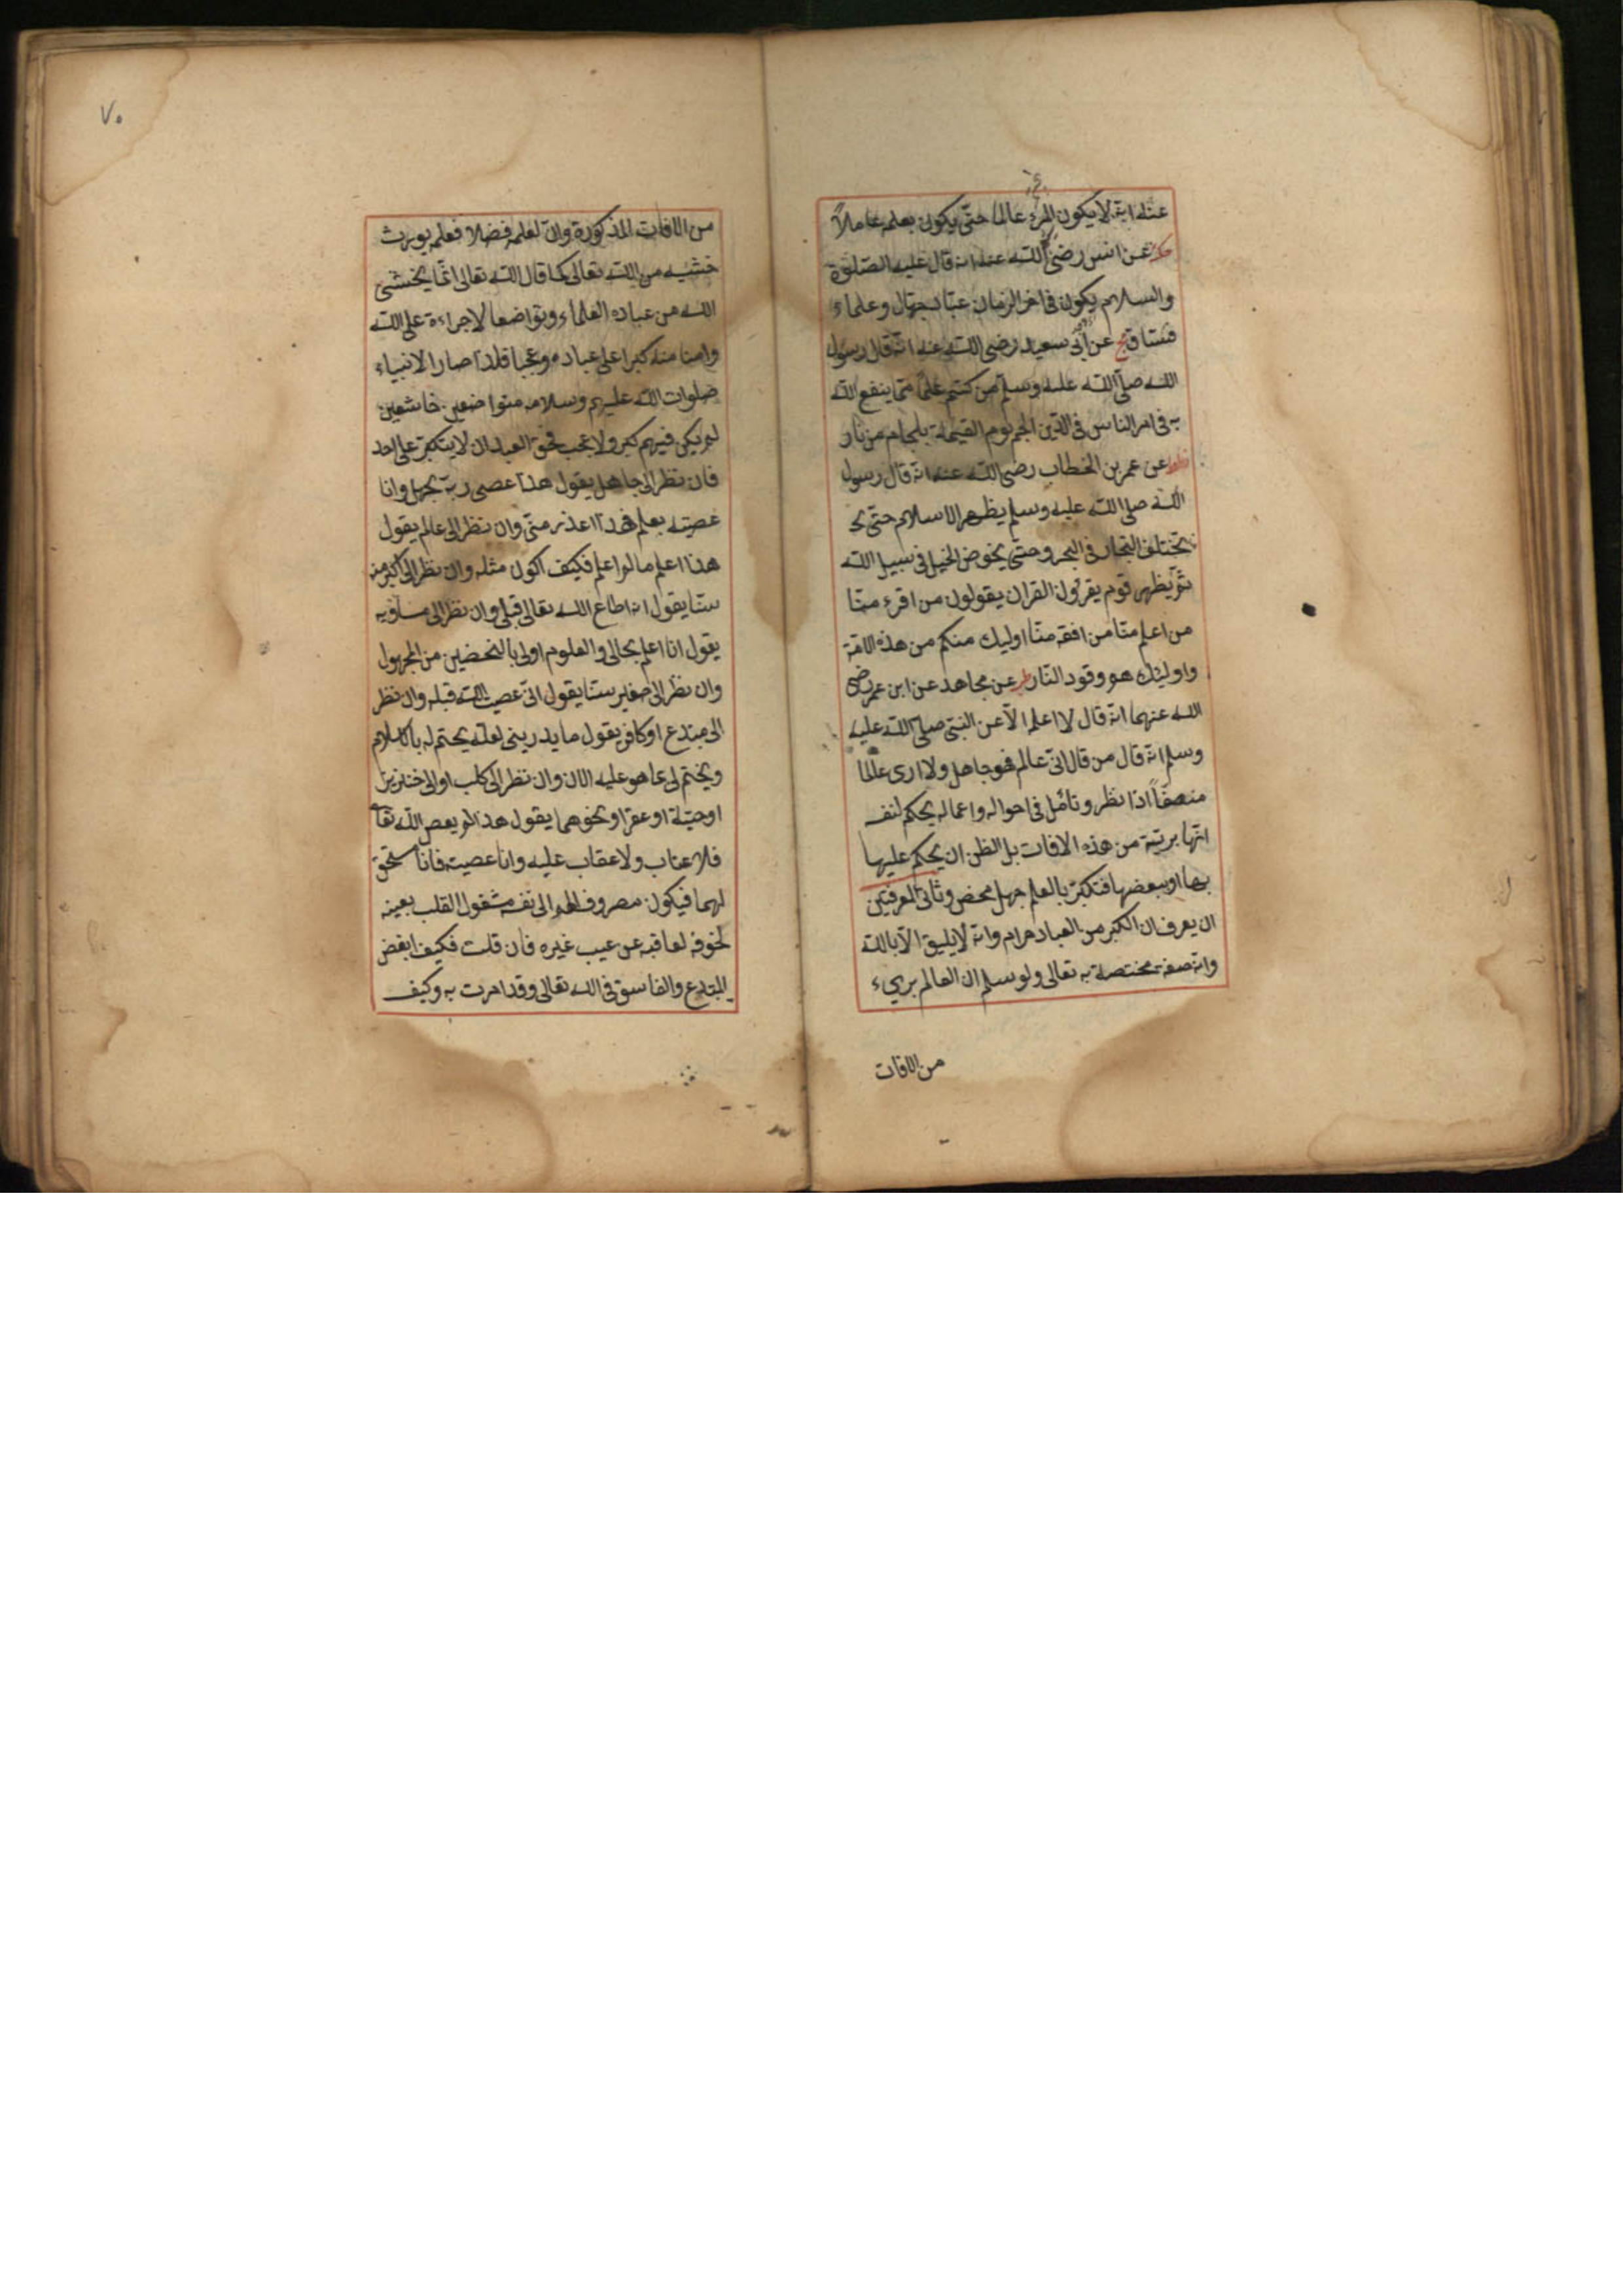 عنه انه لا يكون المرء عالما حتى يكون بعلمه عاملاً
عن انس رضى الله عنه انه قال عليه الصلوة
والسلام يكون فى اخر الزمان عباد جهال وعلماء
فساق عن ابى سعيد رضى الله عنه انه قال رسول
الله صلى الله عليه وسلم من كتم علما مما ينفع الله
به فى امر الناس فى الدين الجم يوم القيمة بلجام من نار
عن عمر بن الخطاب رضى الله عنه انه قال رسول
الله صلى الله عليه وسلم يظهر الاسلام حتى
يختلف التجار فى البحر وحتى يخوض الخيل فى سبيل الله
ثم يظهر قوم يقرؤن القران يقولون من اقرء منا
من اعلم منا من افقه منا اوليك منكم من هذه الامة
واوليك هم وقود النار عن مجاهد عن ابن عمر رضى
الله عنهما انه قال لا اعلم الا عن النبى صلى الله عليه
وسلم انه قال من قال انى عالم فهو جاهل ولا ارى عالما
منصفاً اذا نظر وتامل فى احواله واعماله يحكم لنفسه
انها برئية من هذه الافات بل الظن ان يحكم عليها
بها او ببعضها فتكبر بالعلم جهل محض وثانى المعرفتين
ان يعرف ان الكبر من العباد حرام وانه لا يليق الا بالله
وانه صفة مختصة به تعالى ولو سلم ان العالم برىء
من الافات
٧٠
من الافات المذكورة وان لعلمه فضلا فعلمه يورث
خشية من الله تعالى كما قال الله تعالى انما يخشى
الله من عباده العلماء وتواضعا لاجراءة على الله
وامنا منه كبرا على عباده وعجبا فلذا صار الانبياء
صلوات الله عليهم وسلامه متواضعين خاشعين
لم يكن فيهم كبر ولا عجب فحق العبد ان لا يتكبر على احد
فان نظر الى جاهل يقول هذا عصى ربه بجهل وانا
عصيته بعلم فهذا اعذر منى وان نظر الى عالم يقول
هذا اعلم ما لم اعلم فكيف اكون مثله وان نظر الى اكبر منه
سنا يقول انه اطاع الله تعالى قبلى وان نظر الى مساويه
يقول انا اعلم بحالى والمعلوم اولى بالتحضير من المجهول
وان نظر الى صغير سنا يقول انى عصيت الله قبله وان نظر
الى مبتدع او كافر يقول ما يدرينى لعله يختم له بالاسلام
ويختم لى بما هو عليه الان وان نظر الى كلب او الى خنزير
او حية او عقرا او نحوهما يقول هذا لم يعص الله تعا
فلا عتاب ولا عقاب عليه وانا عصيت فانا مستحق
لهما فيكون مصروف الهم الى نفسه مشغول القلب بعيبه
لخوفه لعاقبه عن عيب غيره فان قلت فكيف ابغض
المبتدع والفاسق فى الله تعالى وقد امرت به وكيف